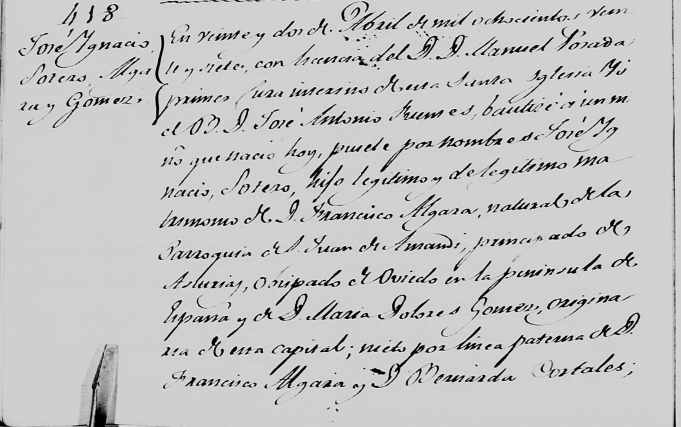 418
José Ygnacio,
Sotero, Alga
ra y Gomez.
En veinte y dos de Abril de mil ochocientos vein
te y siete, con licencia del D. D. Manuel Posada
primer Cura interino de esta Santa Yglesia Yo
el B. D. José Antonio Fuentes, bautisé á un ni
ño que nació hoy, pusele por nombres José Yg
nacio, Sotero, hijo legitimo y de legitimo ma
trimonio de D. Francisco Algara, natural de la
Parroquia de S. Juan de Amandi, principado de
Asturias, obispado de Oviedo en la peninsula de
España y de D. Maria Dolores Gomez, origina
ria de esta capital; nieto por linea paterna de D.
Francisco Algara y D. Bernarda Cortales;